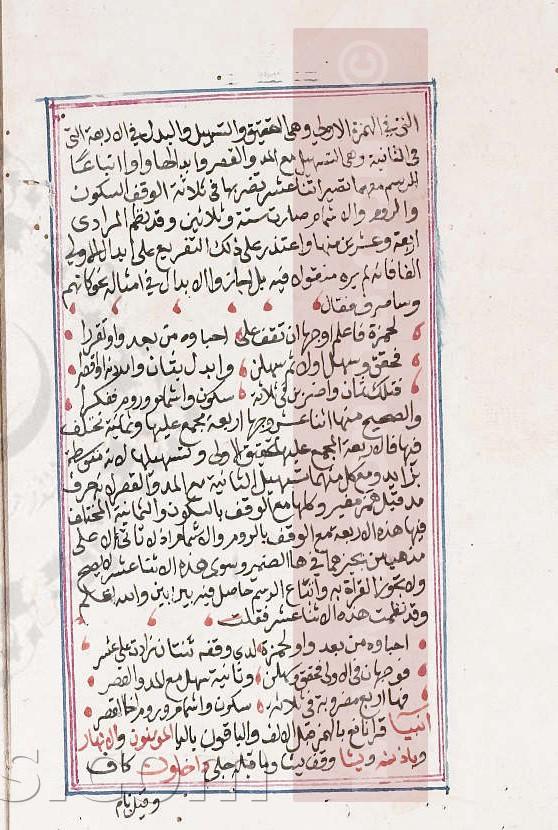 التي في الهمزة الاولى وهي التحقيق والتسهيل والبدل في الاربعة التي
في الثانية وهي التسهيل مع المد والقصر وابدالها واوا اتباعا
للرسم معهما تصير اثنا عشر تضربها في ثلاثة الوقف السكون
والروم والاشمام صارت ستة وثلاثين وقد نظم المرادي
اربعة وعشرين منها واعتذر على ذلك التفريع على ابدال الاولى
الفا فانه لم يره منقولا فيه بل اجاز والابدال في امثاله نحو كانهم
وساصرف فقال
لحمزة فاعلم اوجها ان تقف على احباوه من بعد واو لقرا
فحقق وسهل اولا ثم سهلن وابدل بثان وامددنه او اقصر
فتلك ثمان واضربن في ثلاثة سكون واشمام وروم ففكرا
والصحيح منها اثنا عشر وجها اربعة مجمع عليها وثمانية مختلف
فيها فالاربعة المجمع عليها تحقيق الاولى وتسهيلها لانه متوسطة
بزايد ومع كل منهما تسهيل الثانية مع المد والقصر لانه حرف
مد قبل همز مغير وكلها مع الوقف بالسكون والثمانية المختلف
فيها هذه الاربعة مع الوقف بالروم والاشمام اذ لا تاتي الا على
مذهب من يجيزهما في ها الضمير وسوى هذه الاثنا عشر لا يصح
ولا تجوز القراة به واتباع الرسم حاصل فيه بين بين والله اعلم
وقد نظمت هذه الاثنا عشر فقلت
احباوه من بعد واو لحمزة لدى وقفه ثنتان زادت على عشر
فوجهان في الاولى فحقق وسهلن وثانية سهل مع المد والقصر
فها اربع مضروبة في ثلاثة سكون واشمام وروم اخا القصر
انبيا قرا نافع بالهمز قبل الالف والباقون باليا المومنون والانهار
وباذنه ويشا وقف يشا وما قبله جلي داخلون كاف
وقيل تام
s.com